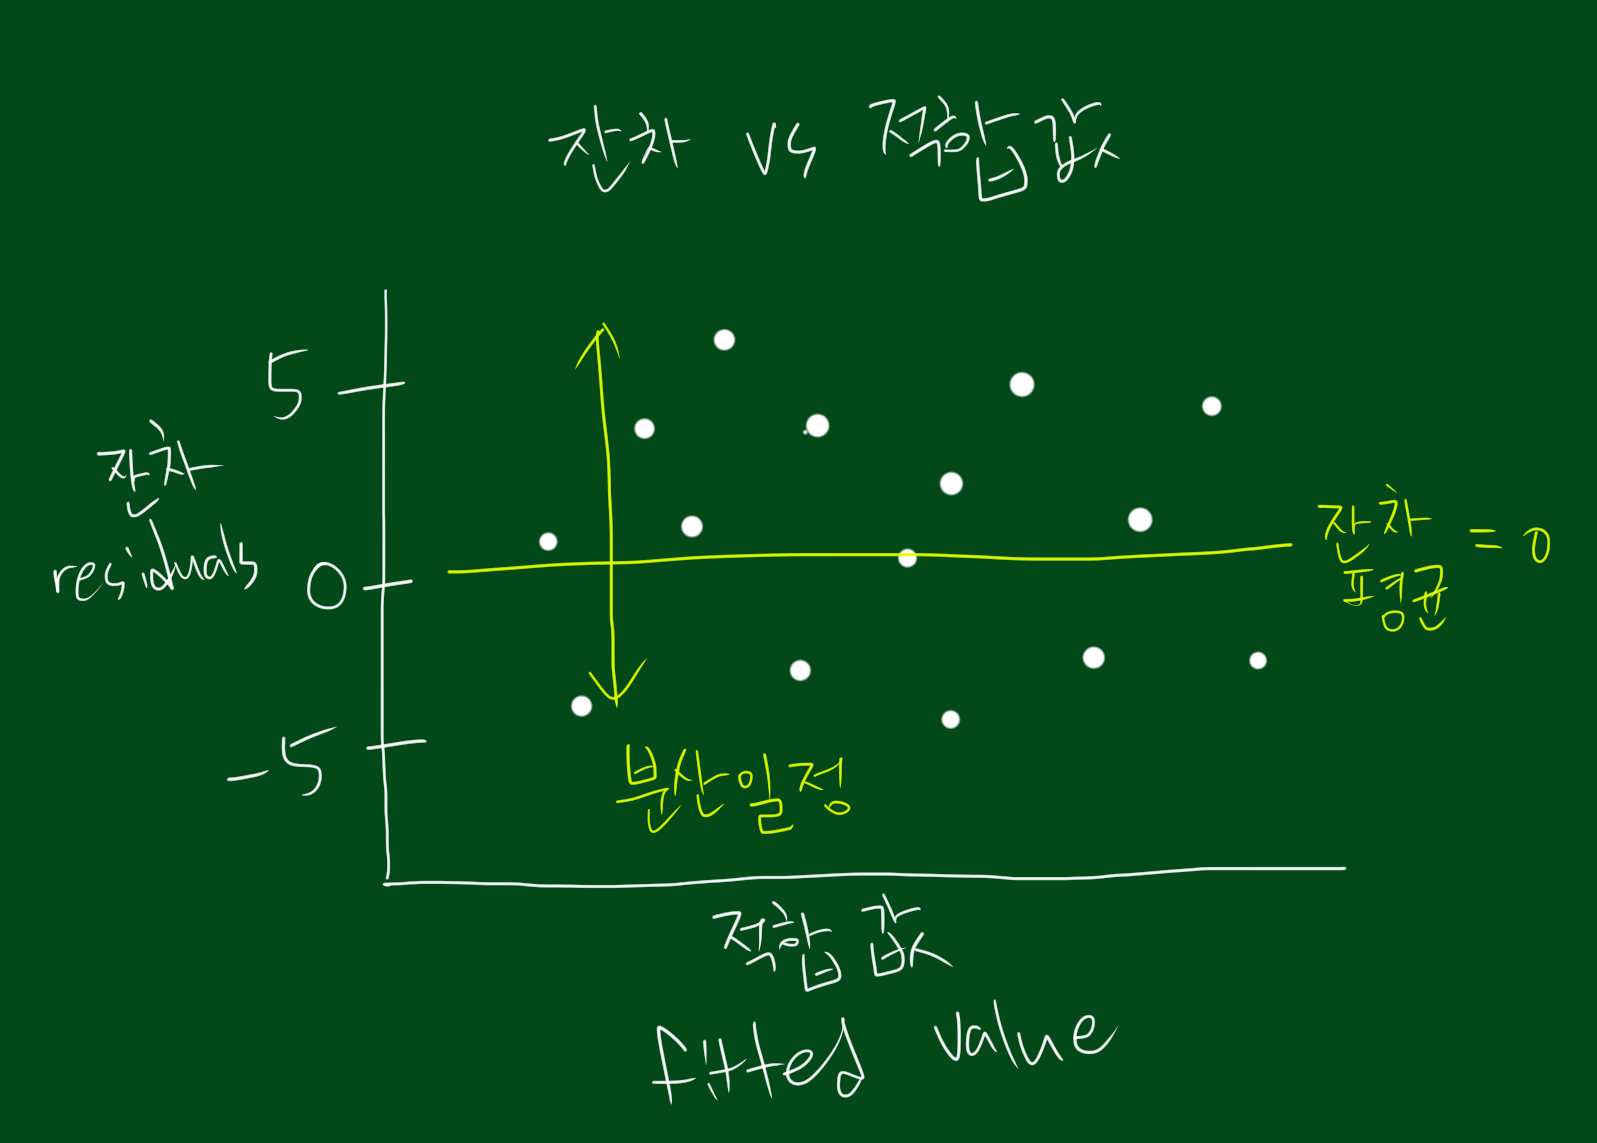 잔차 vs 적합값
5
잔차
residuals
0
-5
잔차
평균 = 0
분산일정
적합 값
fitted value